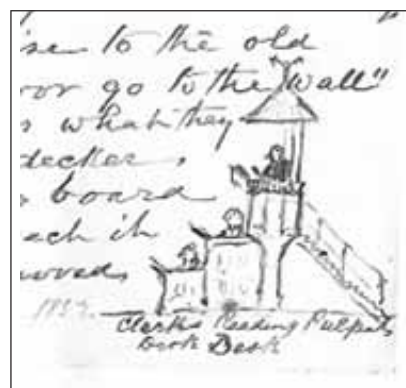 ise to the old
oor go to the wall"
s what they
decker,
board
each it
moved,
Clerks Reading Pulpit
Desk